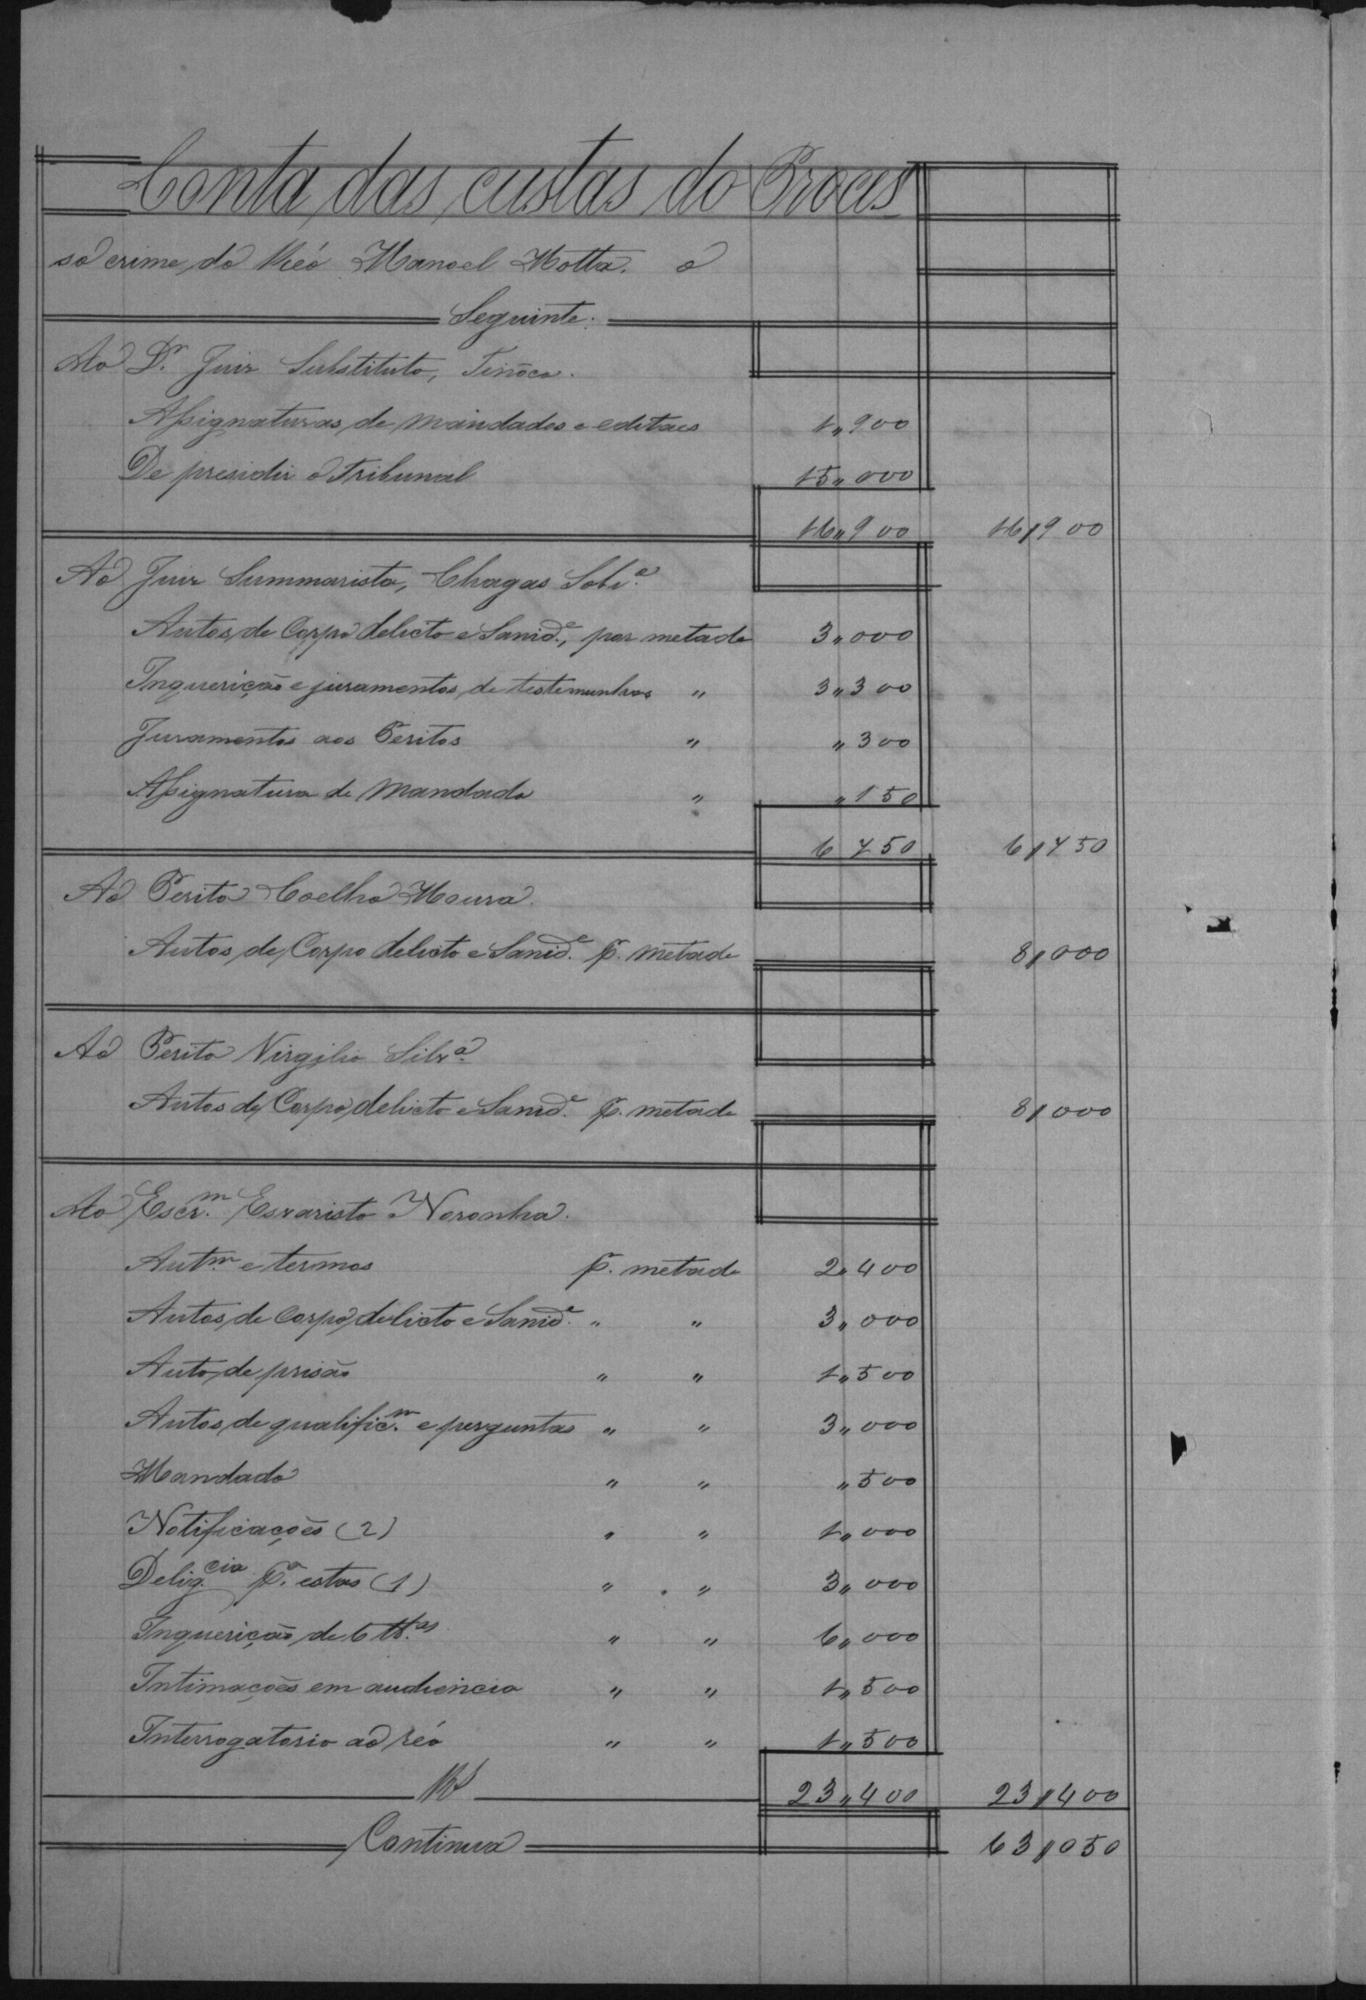 Conta das custas do Proces
so crime do Réo Manoel Motta. o
Seguinte:
Ao Dr. Juiz Substituto, Tinôco.
Assignaturas de mandados e editaes 1,,900
De presidir o Tribunal 15,,000
16,,900 16,,900
Ao Juiz Summarista, Chagas Sobr.o
Autos de Corpo delicto e Sanid.e, por metade 3,,000
Inquerição e juramentos de testemunhas ,, 3,,300
Juramentos aos Peritos ,, ,,300
Assignatura de Mandado ,, ,,150
6 750 6,,750
Ao Perito Coelho Moura.
Autos de Corpo delicto e Sanid.e p. metade 8,,000
Ao Perito Virgilio Silv.a
Autos de Corpo delicto e Sanid.e p. metade 8,,000
Ao Escr.m Evaristo Noronha.
Aut.m e termos p. metade 2,,400
Autos de corpo delicto e Sanid.e ,, ,, 3,,000
Auto de prisão ,, ,, 1,,500
Autos de qualific.m e perguntas ,, ,, 3,,000
Mandado ,, ,, ,,500
Notificações (2) ,, ,, 1,,000
Delig.cia p.a estas (1) ,, ,, 3,,000
Inquerição de 6 tt.as ,, ,, 6,,000
Intimações em audiencia ,, ,, 1,,500
Interrogatorio ao réo ,, ,, 1,,500
Rs 23,,400 23,,400
Continua 63,,050